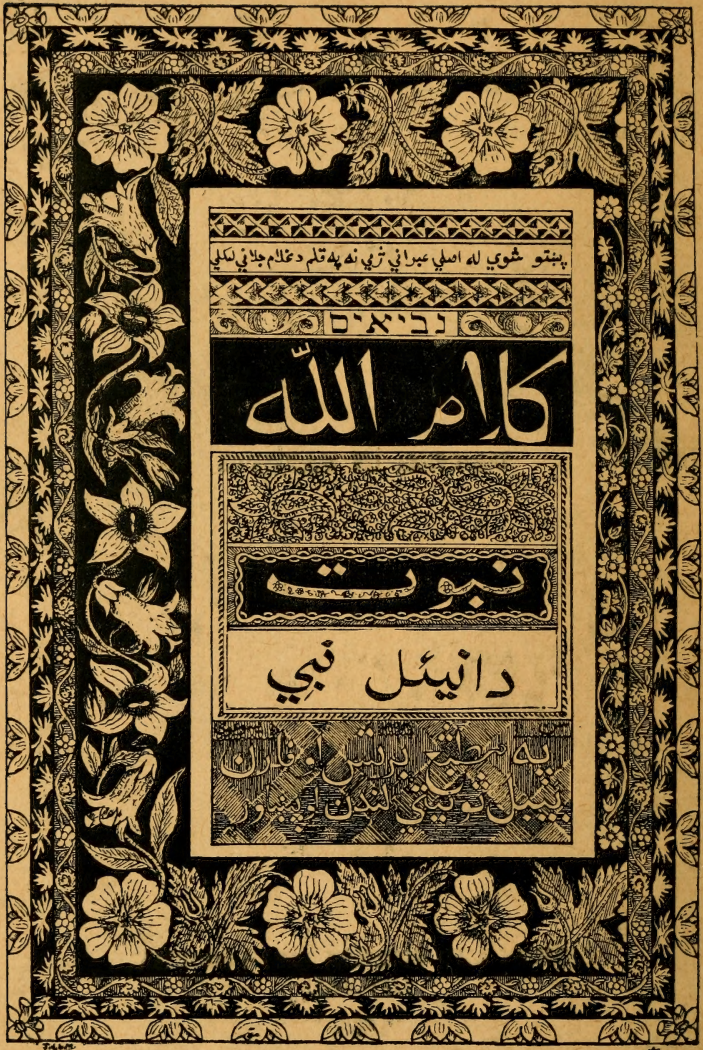 پښتو شوي له اصلي عبراني ژبي نه په قلم د غلام جلاني لمكلي
נביאים
كلام اللّٰه
نبوت
دانيئل نبي
په مطبع برٽش او فارن
ٻيبل سوسيٽي لندن او پښاور